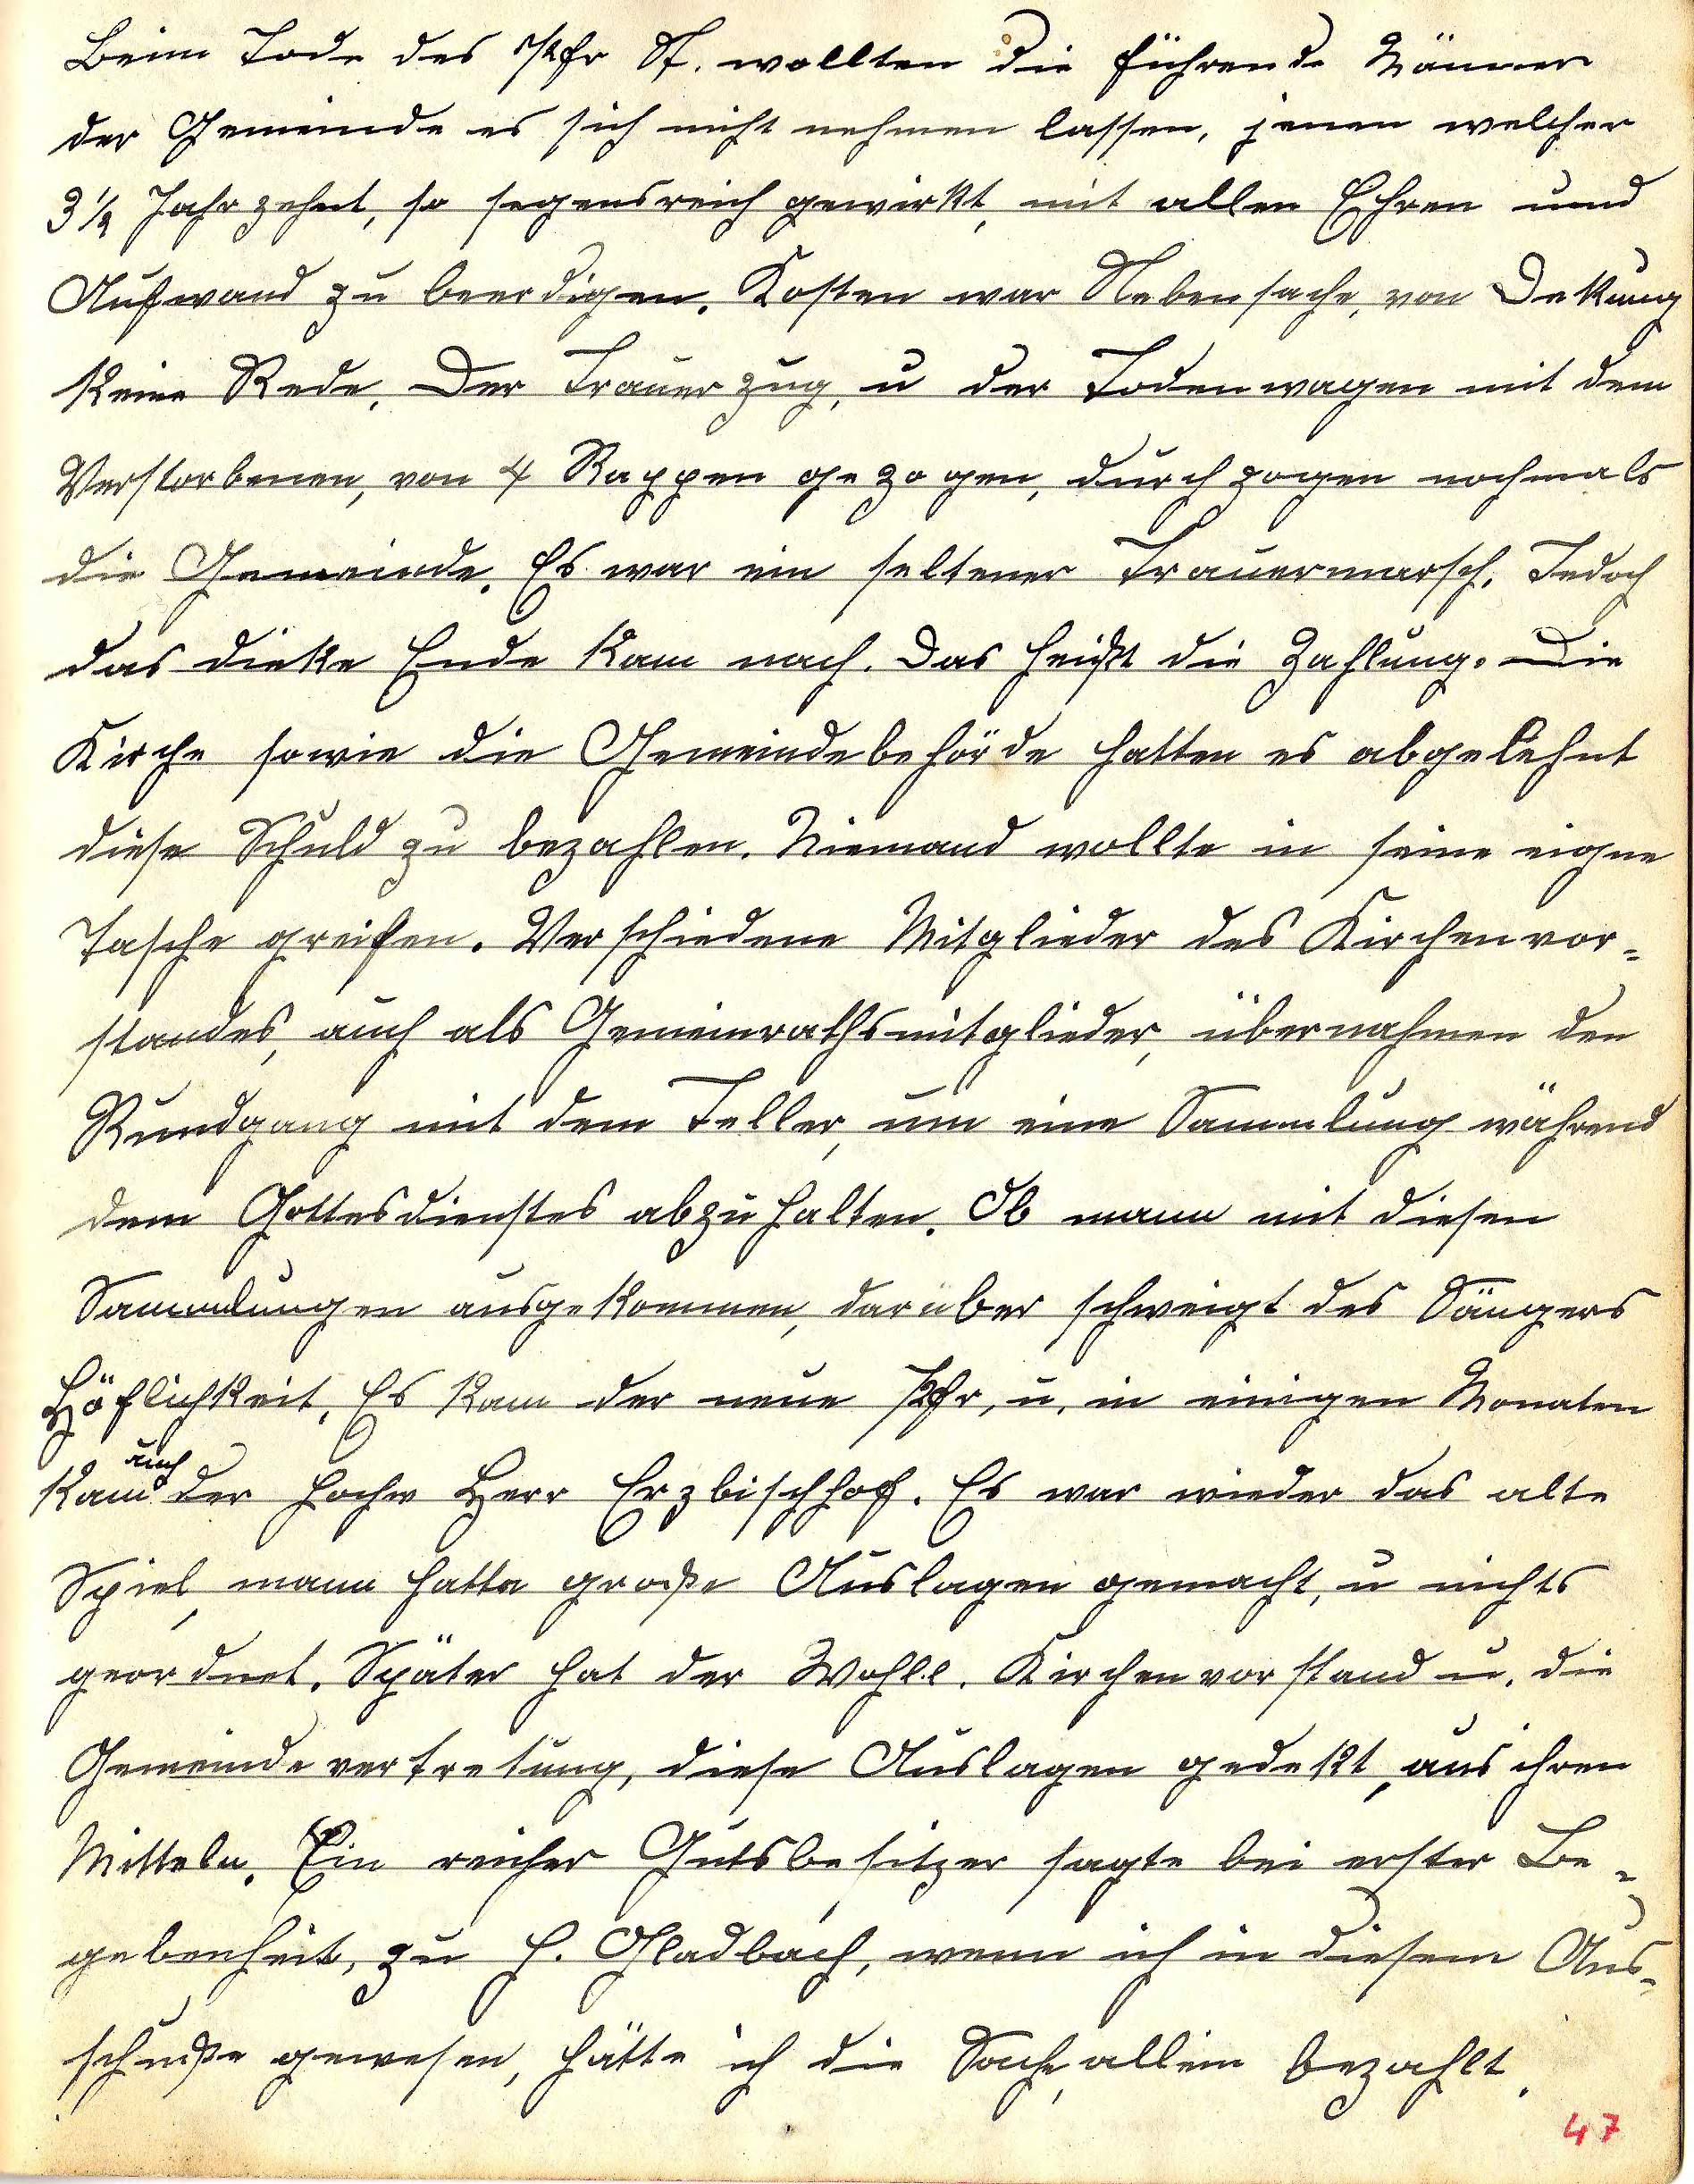 Beim Tode des Pfr St. wollten die führende Männer
der Gemeinde es sich nicht nehmen lassen, jenen welcher
3½ Jahrzehnt, so segensreich gewirkt, mit allen Ehren und
Aufwand zu beerdigen. Kosten war Nebensache, von Dekung
keine Rede. Der Trauerzug, u der Todenwagen mit dem
Verstorbenen, von 4 Rappen gezogen, durchzogen nochmals
die Gemeinde. Es war ein seltener Trauermarsch. Jedoch
das dieke Ende kam nach. Das heißt die Zahlung. Die
Kirche sowie die Gemeindebehörde hatten es abgelehnt
diese Schuld zu bezahlen. Niemand wollte in seine eigne
Tasche greifen. Verschiedene Mitglieder des Kirchenvor=
standes, auch als Gemeinrathsmitglieder, übernahmen den
Rundgang mit dem Teller, um eine Sammlung während
dem Gottesdienstes abzuhalten. Ob mann mit diesen
Sammlungen ausgekommen, darüber schweigt des Sängers
Höflichkeit. Es kam der neue Pfr, u. in einigen Monaten
kam auch der Hochw Herr Erzbischhof. Es war wieder das alte
Spiel, mann hatte große Auslagen gemacht, u nichts
geordnet. Später hat der Wohll. Kirchenvorstand u. die
Gemeindevertretung, diese Auslagen gedekt, aus ihren
Mitteln. Ein reicher Gutsbesitzer sagte bei erster Be=
gebenheit, zu H. Gladbach, wenn ich in diesem Aus=
schuße gewesen, hätte ich die Sache, allein bezahlt.
47